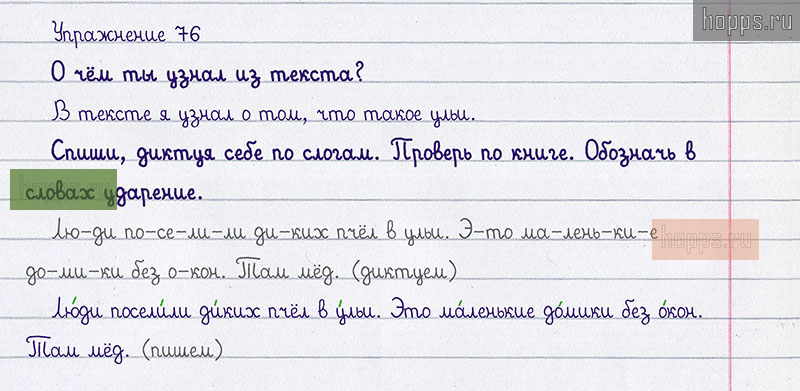 hopps.ru
Упражнение 76
О чём ты узнал из текста?
В тексте я узнал о том, что такое ульи.
Спиши, диктуя себе по слогам. Проверь по книге. Обозначь в
словах ударение.
Лю-ди по-се-ли-ли ди-ких пчёл в ульи. Э-то ма-лень-ки-е
hopps.ru
до-ми-ки без о-кон. Там мёд. (диктуем)
Лю́ди посели́ли ди́ких пчёл в у́льи. Это ма́ленькие до́мики без о́кон.
Там мёд. (пишем)